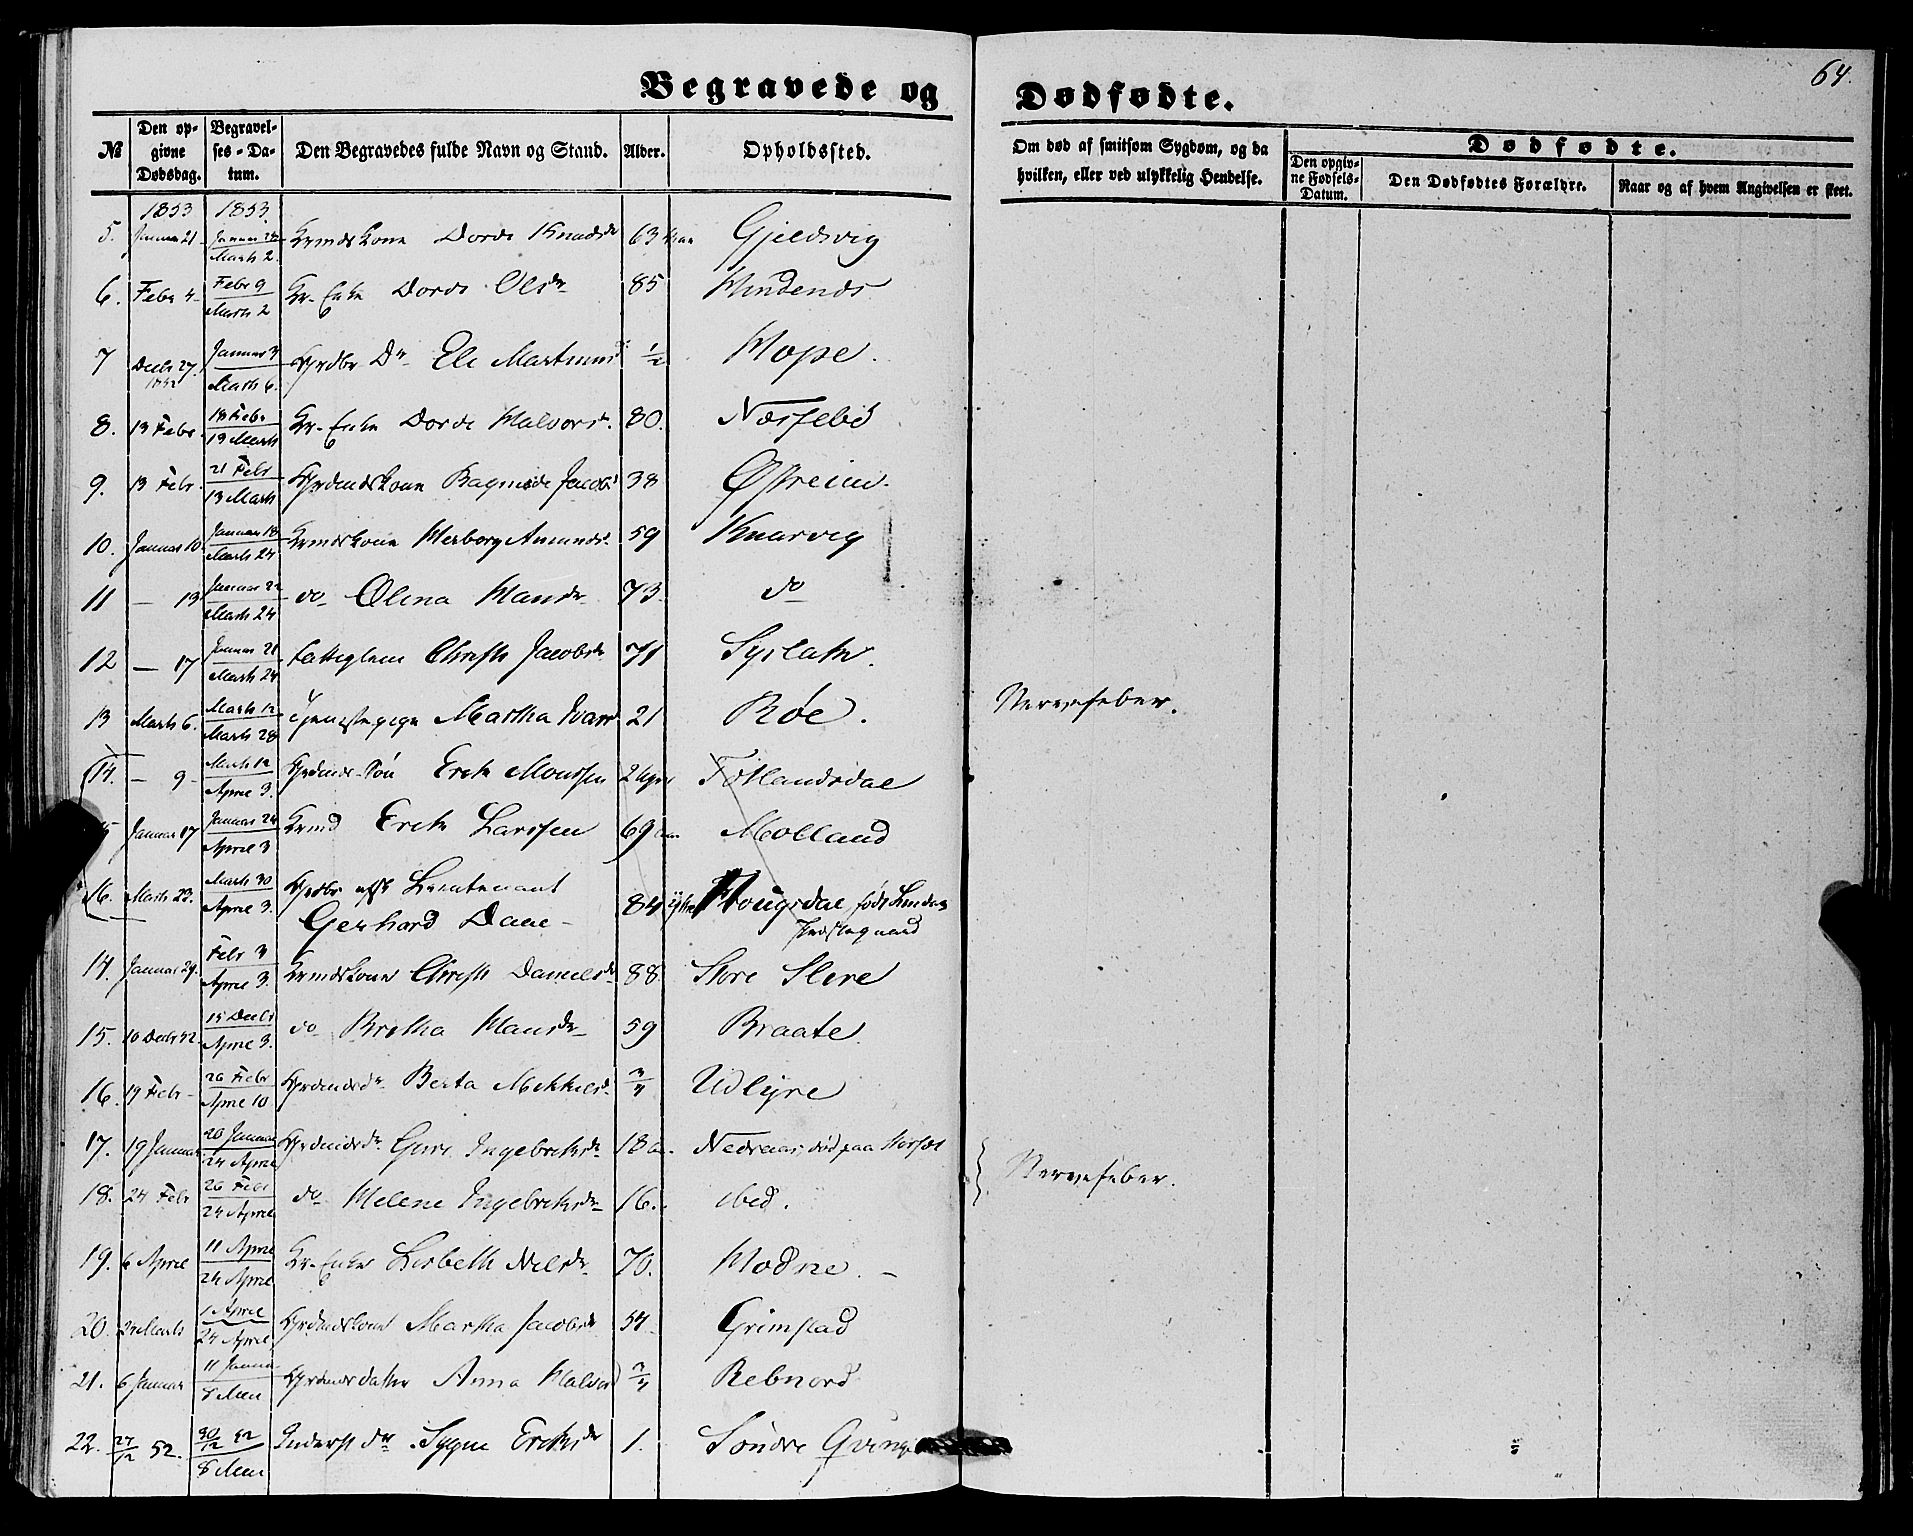 Begravede og Dødfødte. 64.
№ Den opgivne Dødsdag. Begravelses-Datum. Den Begravedes fulde Navn og Stand. Alder. Opholdssted. Om død af smitsom Sygdom, og da hvilken, eller ved ulykkelig Hendelse. Dødfødte. Den opgivne Fødsels-Datum. Den Dødfødtes Forældre. Naar og af hvem Angivelsen er skeet.
1853 1853.
5. Januar 21 Januar 28 Marts 2. Kone Dorde Knudsdr 63 Gjeldsvig
6. Febr 4 Febr 9 Marts 2 Kr-Enke Dorde Olsdr 85 Hindenes
7 Decbr 27. 1852 Januar 3 Marts 6. Grdbr Dr Eli Martinusd 1/2 Hope.
8. 13 Febr. 18 Febr 13 Marts Kr-Enke Dorde Halvorsdr. 80. Næssebø
9. 13 Febr. 21 Febr 13 Marts Grdmdskone Ragnilde Jacobsd 38 Østreim
10. Januar 10 Januar 18 Marts 24 Krmdskone Herborg Amundsd. 59 Knarvig
11 — 13 Januar 22 Marts 24 do Olina Hansdr 73. do
12 — 17 Januar 21 Marts 24 Fattiglem Christi Jacobsdr 71
13 Marts 6. Marts 12 Marts 28 Tjenestepige Martha Ivarsd 21 Røe. Nervefeber.
14. — 9 Marts 12 April 3. Grdmds Søn Erik Monssen 2 Uger Totlandsdal
15 Januar 17 Januar 24 April 3 Krmd Erik Larssen 69 aar Molland
16. Marts 23. Marts 30 April 3. Grdbr afsk Lieutenant Gerhard Daae 84 ytre Hougsdal, født Lindaas Præstegaard
14. Januar 29. Febr 3 April 3. Krmdskone Christi Danielsdr 88. Store Slire
15. 10 Decbr 52. 15 Decbr April 3. do Britha Hansdr 59 Braate
16. 19 Febr 26 Febr April 10 Grdmdsdr. Berta Mikkelsd. 3/4 Udlyre
17. 19 Januar 20 Januar 24 April Grdmdsdr. Guri Ingebriktsdr 18 a. Nedreaas, død paa Horsøe } Nervefeber.
18. 24 Febr 26 Febr 24 April do Helene Ingebriktsdr 16. ibid.
19. 6 April 11 April 24 April Kr-Enke Lisbeth Nilsdr 70. Hodne.
20. 24 Marts 1 April 24 April Grdmdskone Martha Jacobsdr 54 Grimstad
21. 6 Januar 11 Januar 8 Mai Grdmdsdatter Anna Halvorsd 3/4 Rebnord
22. 27/12 52. 30/12 52 8 Mai Inderst dr. Sygni Eriksdr 1. Søndre Qvinge